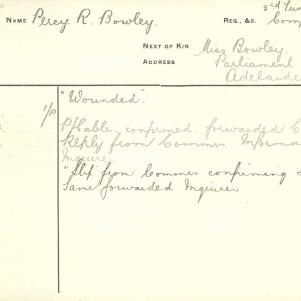 3rd Tun
NAME Percy R. Bowley. REG., &C. Comp
NEXT OF KIN Miss Bowley.
ADDRESS Parliament
Adelaide
1/P "Wounded".
P/Cable confirmed forwarded
Reply from Commrs.
Inquirer
"Slip from Commrs confirming
Same forwarded Inquirer